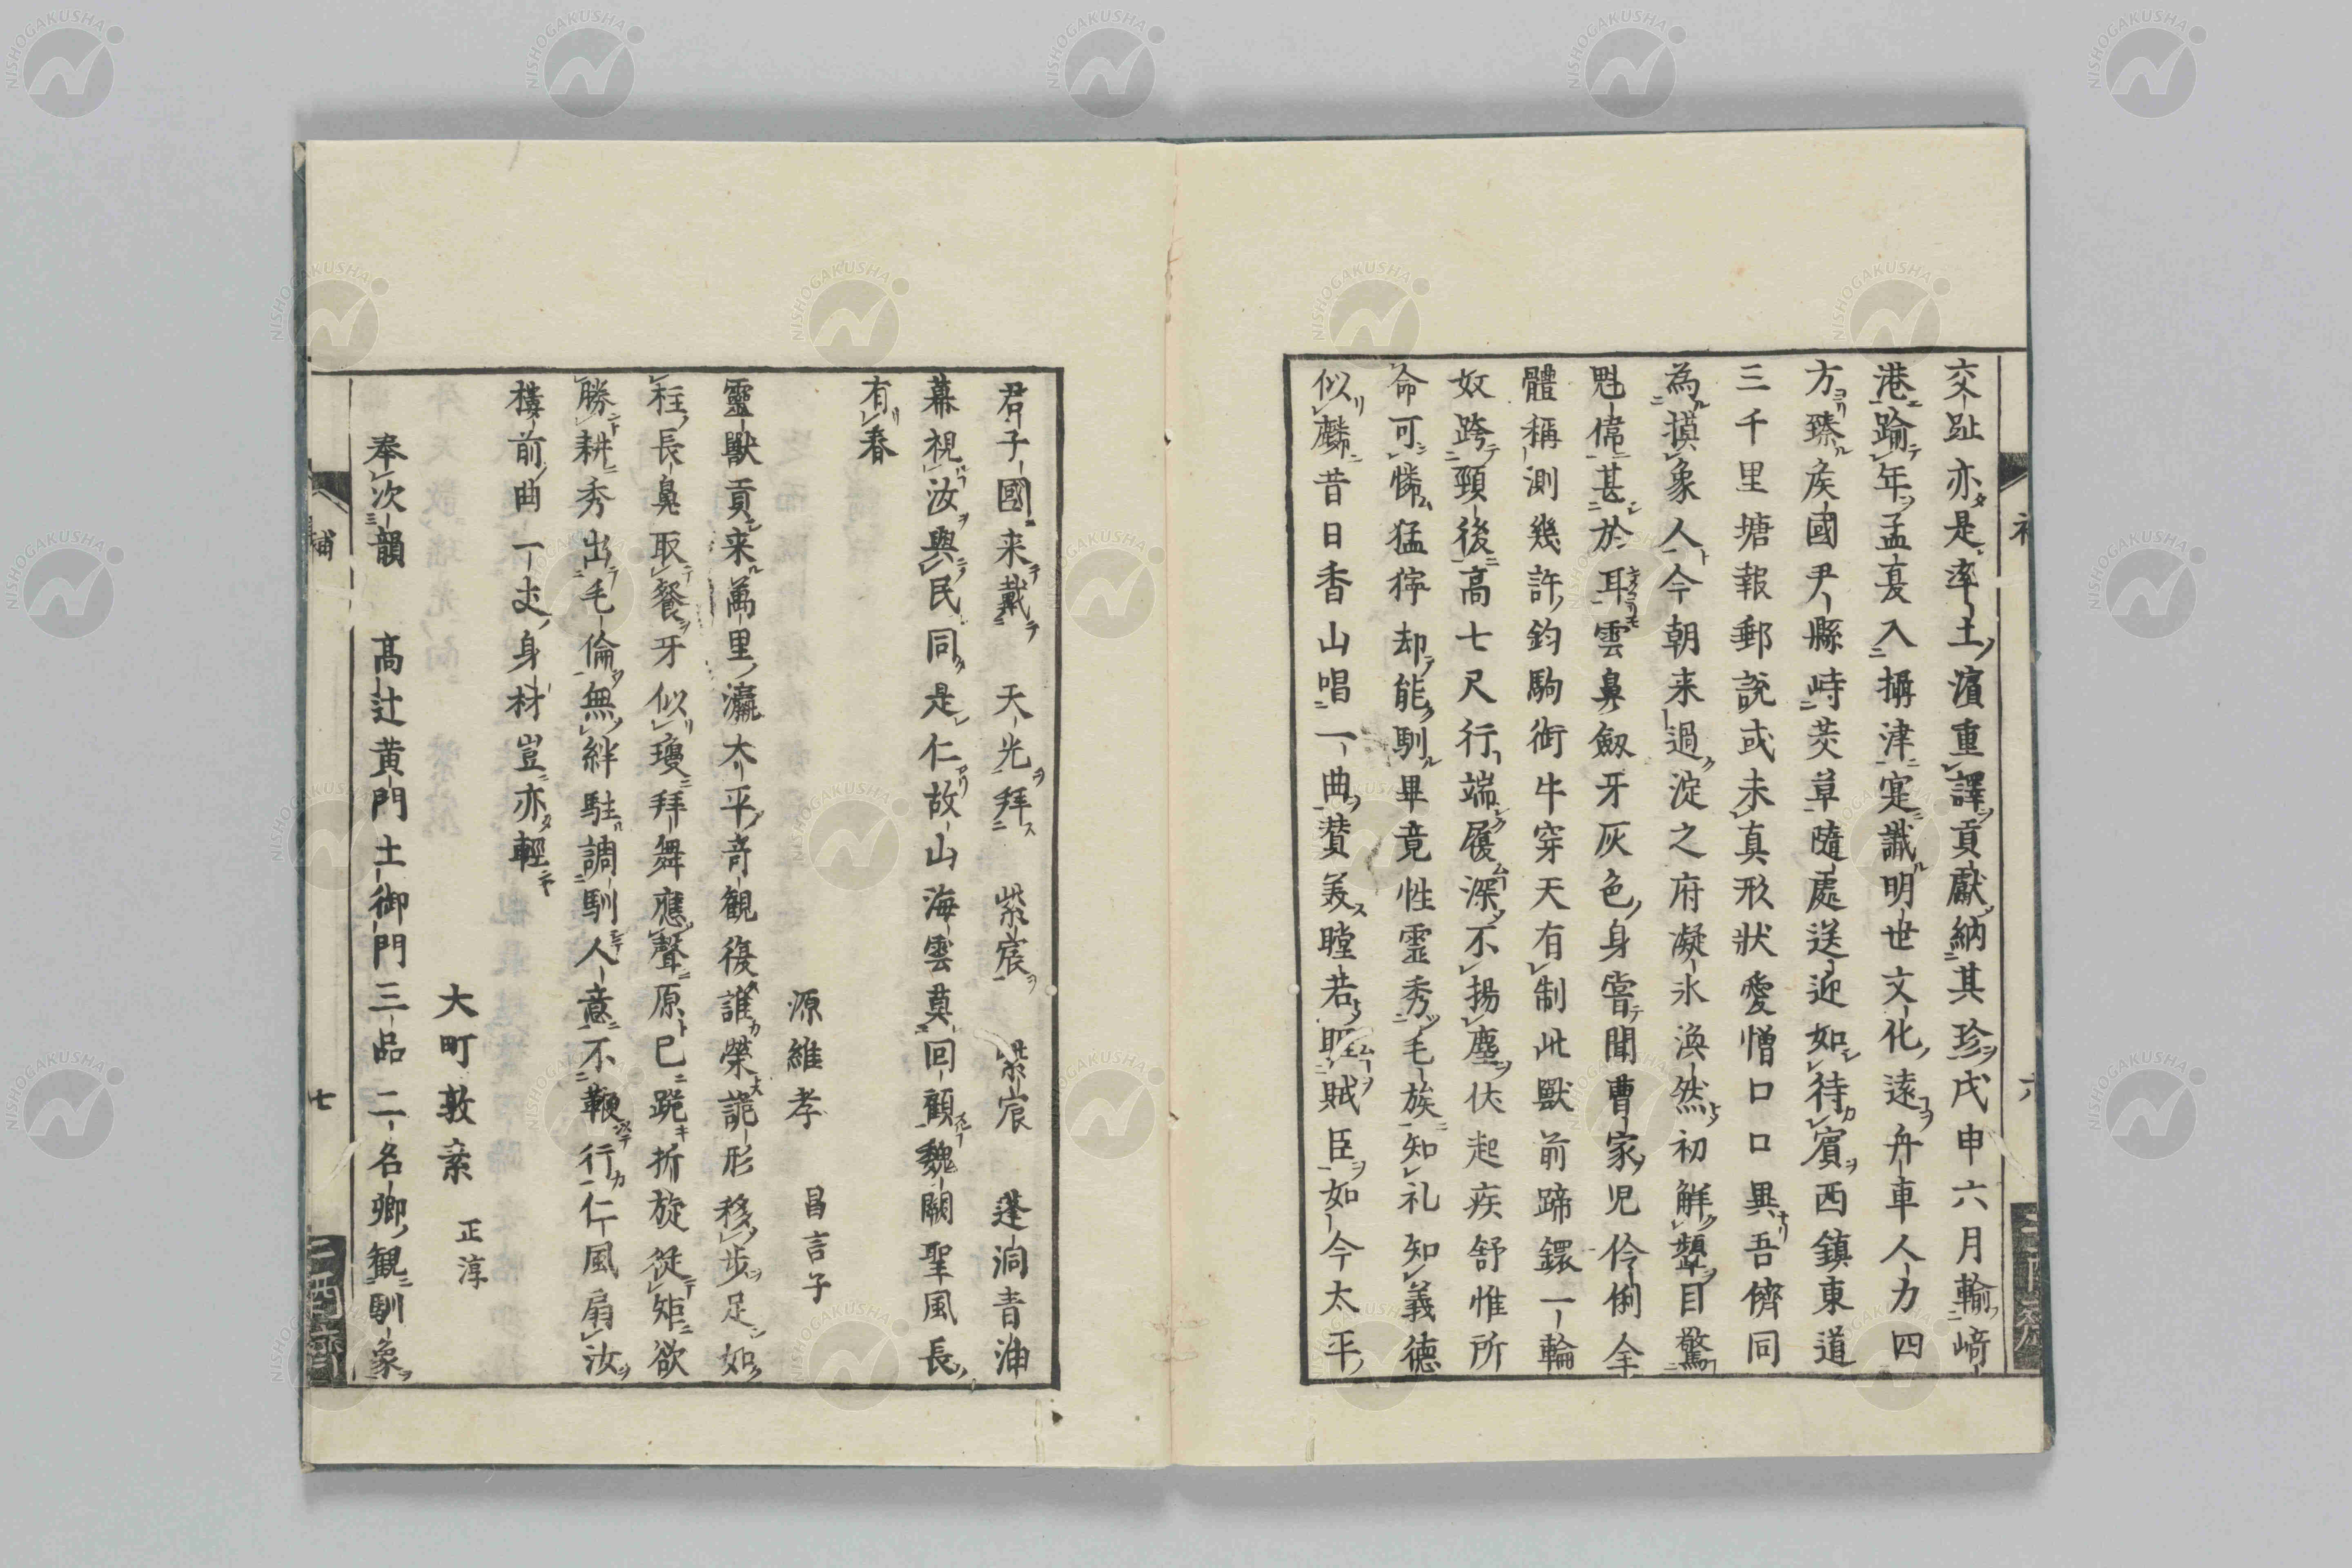 交趾亦是率土濱重譯貢獻納其珍戊申六月輸﨑
港踰年孟夏入摂津寔識明世文化遠舟車人力四
方臻矦國尹縣峙茭草隨處送迎如待賓西鎮東道
三千里塘報郵説或未真形狀愛憎口口異吾儕同
為摸象人今朝来過淀之府凝氷渙然初觧顰目驚
魁偉甚於耳雲鼻劔牙灰色身嘗聞曹家児伶俐全
體稱測幾許鈞駒銜牛穿天有制此獸前蹄鐶一輪
奴跨頸後高七尺行端履深不揚塵伏起疾舒惟所
命可憐猛獰却能馴畢竟性霊秀毛族知礼知義徳
似麟昔日香山唱一曲賛美瞠若賦臣如今太平
君子國来戴天光拜紫宸紫宸蓬洞青油
幕視汝與民同是仁故山海雲莫回顧魏闕聖風長
有春
源維孝 昌言子
靈獸貢来萬里瀛太平竒観復誰榮詭形移步足如
柱長鼻取餐牙似瓊拜舞應聲原已跪折旋従矩欲
勝耕秀出毛倫無絆駐調馴人意不鞭行仁風扇汝
樓前曲一丈身材豈亦輕
大町敦素 正淳
奉次韻 髙辻黄門土御門三品二名卿観馴象
補
七
NISHOGAKUSHA